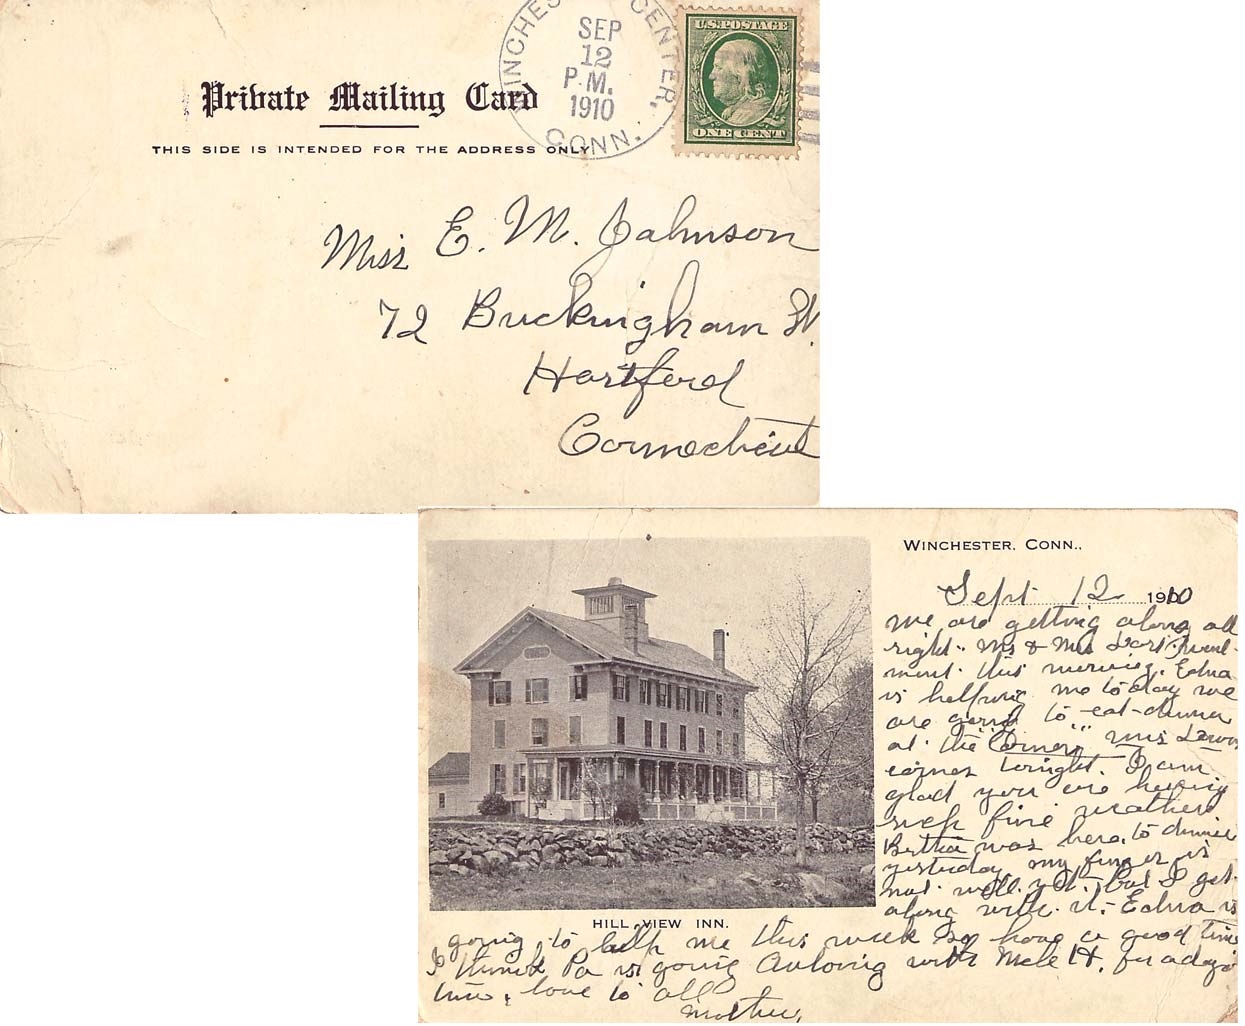 WINCHESTER CENTER,
SEP
12
P.M.
1910
CONN.
U.S. POSTAGE
ONE CENT
Private Mailing Card
THIS SIDE IS INTENDED FOR THE ADDRESS ONLY
Miss E. M. Johnson
72 Buckingham St.
Hartford
Connecticut
WINCHESTER, CONN.,
Sept 12 1910
We are getting along all
right. Mr & Mrs
this morning. Edna
is helping me today we
are going to eat dinner
at the Mrs
comes tonight. I am
glad you are having
such fine weather
Bertha was here to dinner
yesterday. my finger is
not well yet but I get
along with it. Edna is
HILL VIEW INN.
going to help me this week so have a good time
I think Pa is going with H. for a day
love to all
Mother.